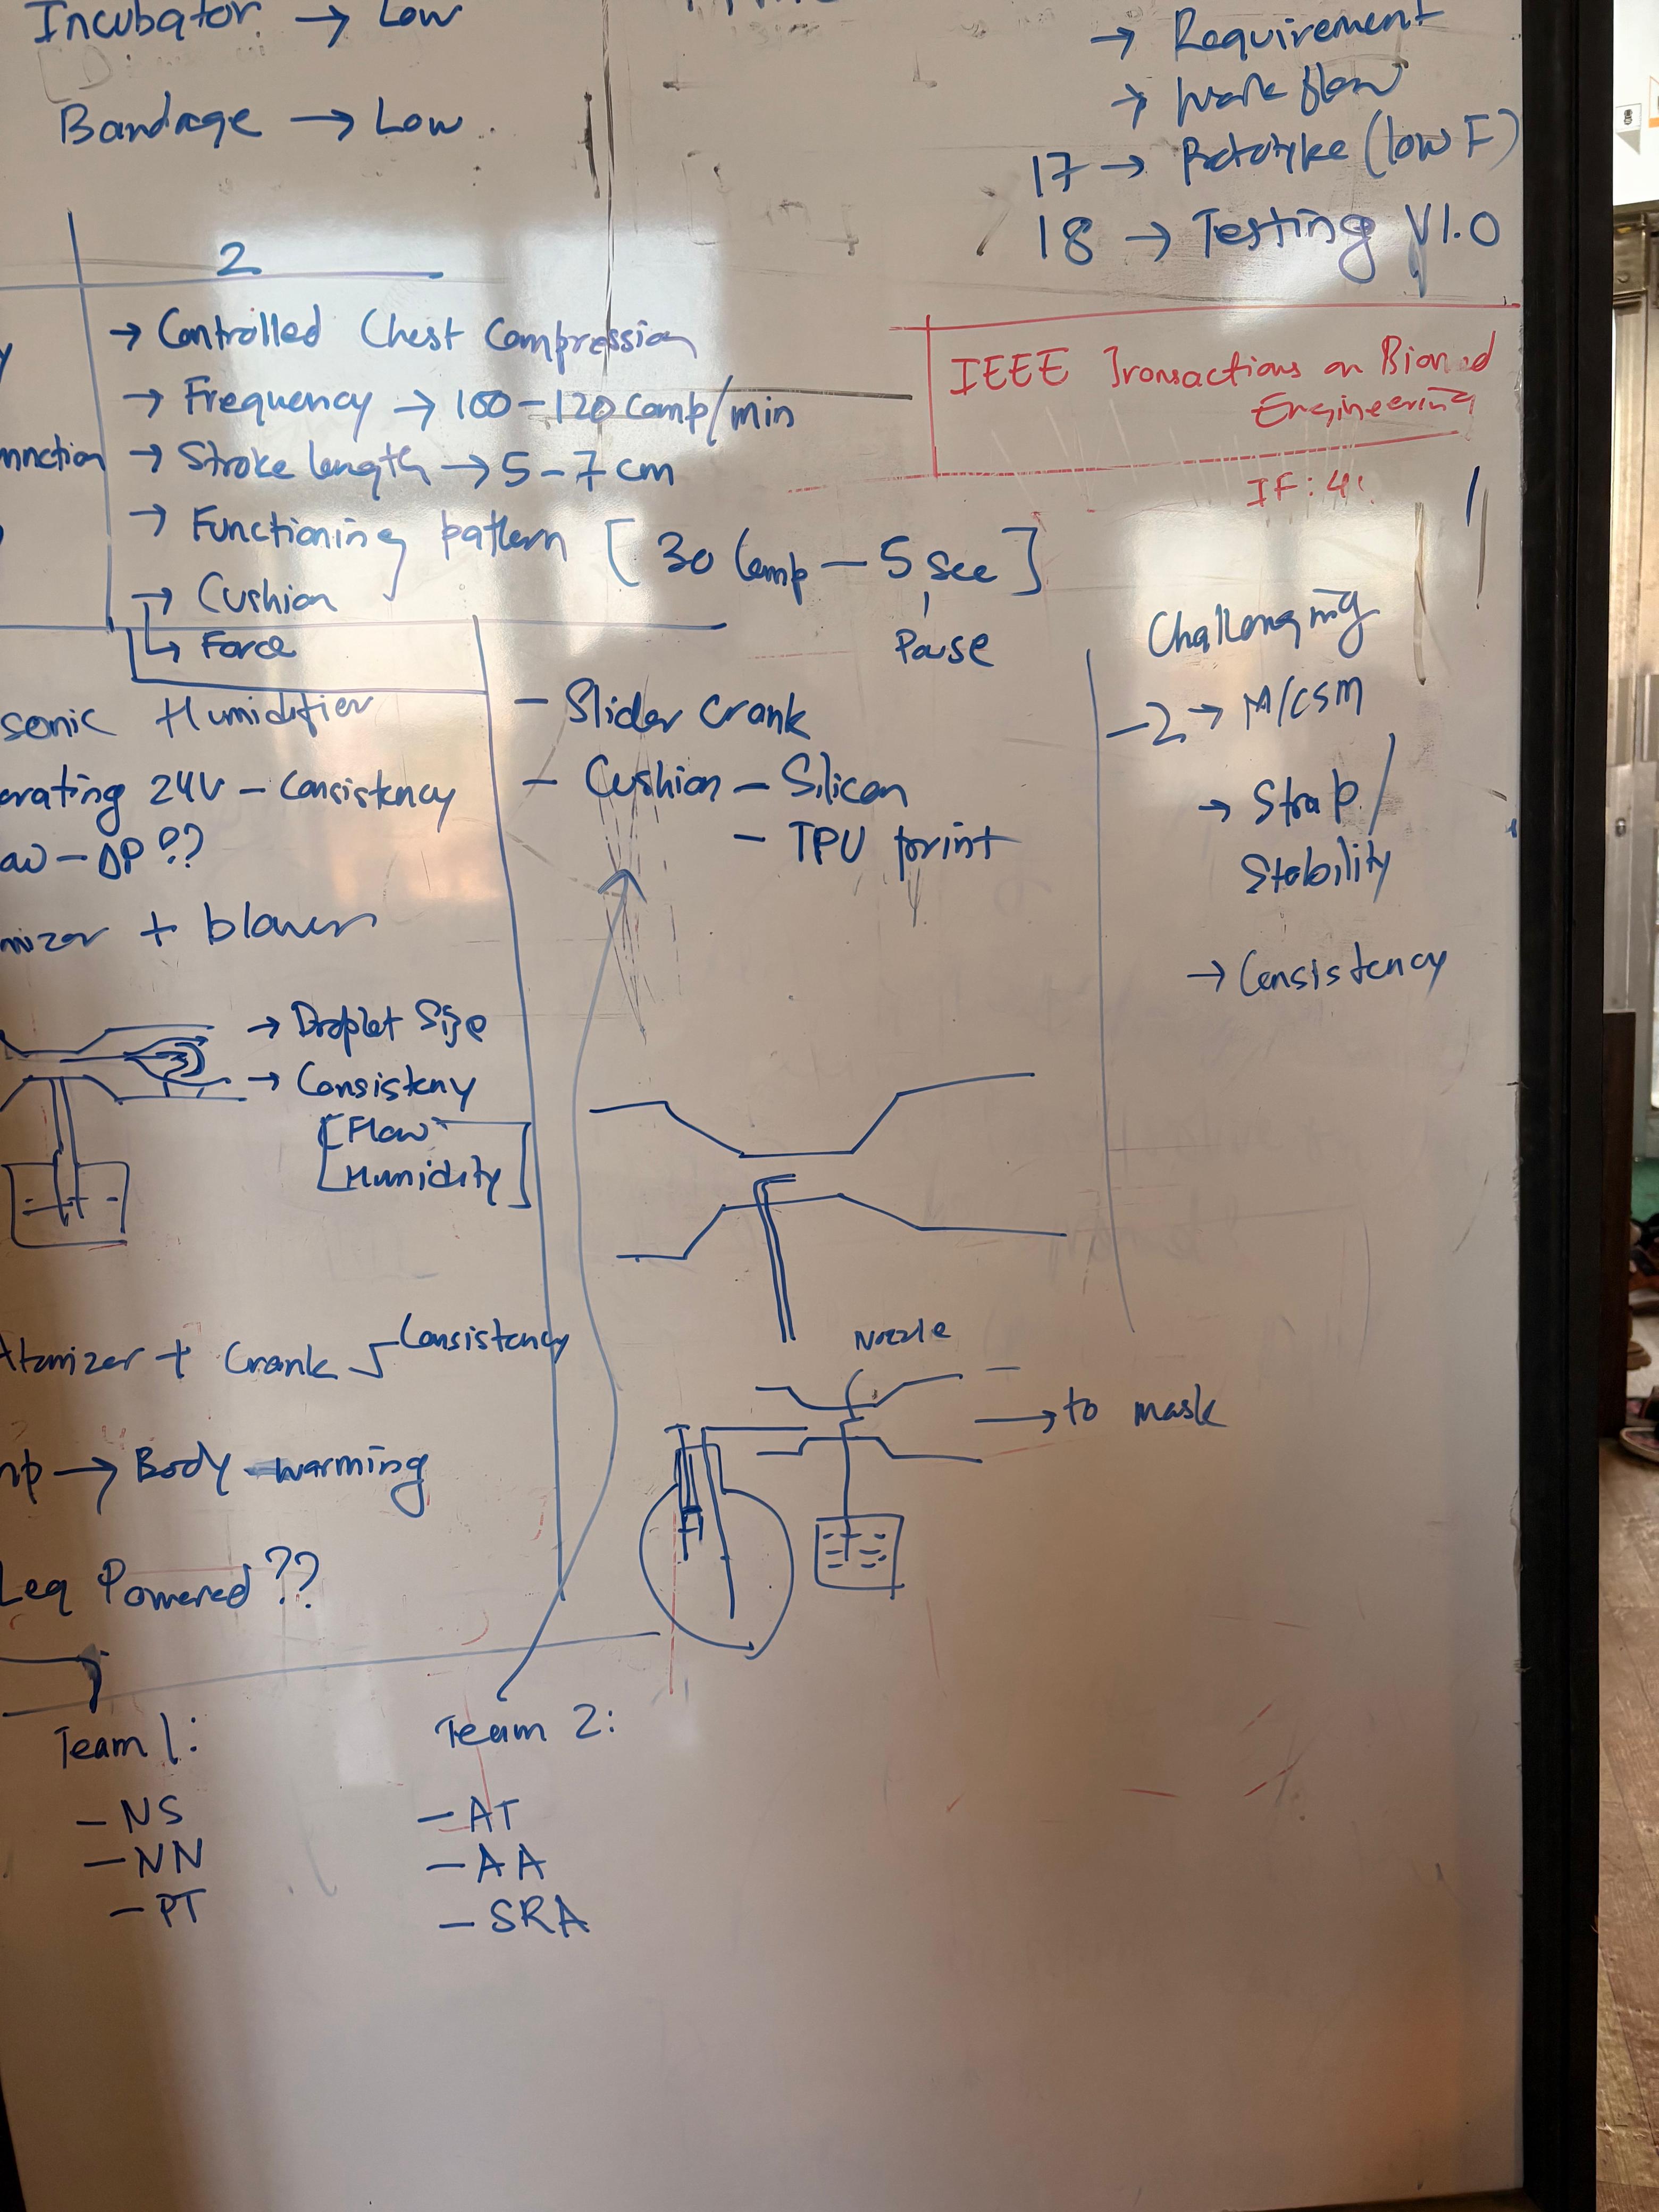 Incubator → Low
Bandage → Low
→ Requirement
→ Work flow
17 → Prototype (low F)
18 → Testing V1.0
2
→ Controlled Chest Compression
→ Frequency → 100-120 comp/min
→ Stroke length → 5-7 cm
→ Functioning pattern [30 Comp - 5 sec]
Pause
→ Cushion
↳ Force
IEEE Transactions on Biomed
Engineering
IF: 4.
nnction
sonic Humidifier
erating 24V - Consistency
- ΔP??
mizer + blower
→ Droplet Size
→ Consisteny
[Flow
Humidity]
Atomizer + Crank Consistency
mp → Body warming
Leg Powered??
- Slider crank
- Cushion - Silicon
- TPU print
Challenging
-2 → M/CSM
→ Strap/
Stability
→ Consistency
Nozzle
→ to mask
Team 1:
- NS
- NN
- PT
Team 2:
- AT
- AA
- SRA